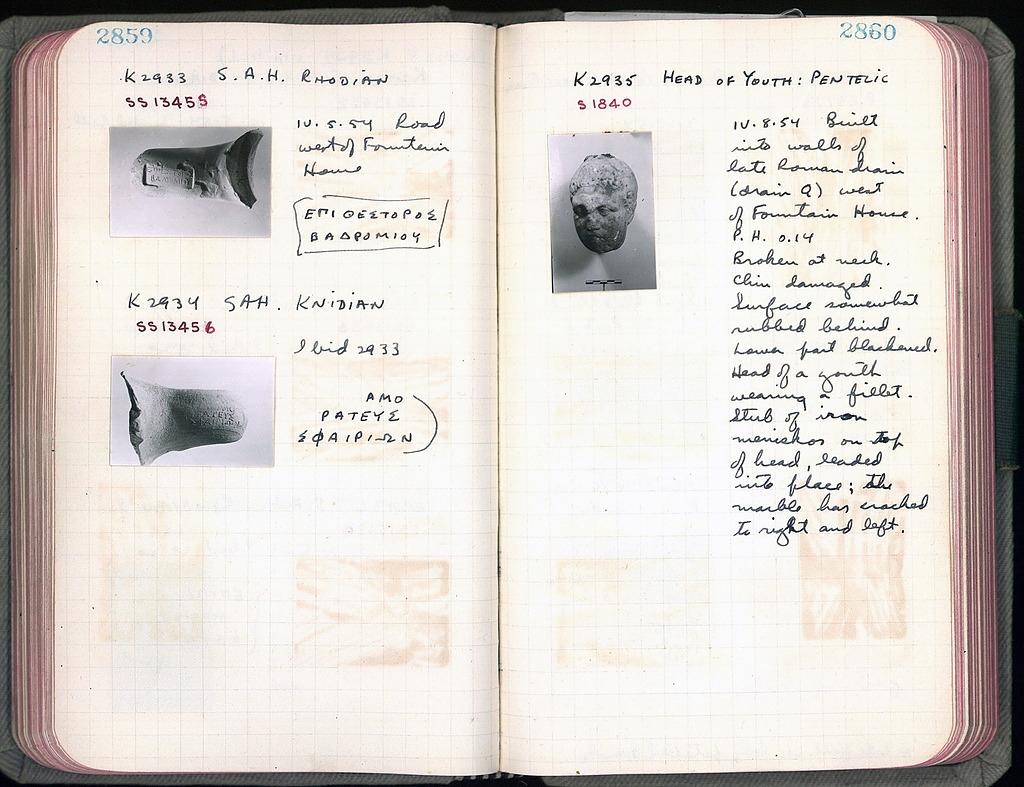 2859
K2933 S.A.H. RHODIAN
SS13455
IV.5.54 Road
west of Fountain
House
ΕΠΙ ΘΕΣΤΟΡΟΣ
ΒΑΔΡΟΜΙΟΥ
K2934 SAH. KNIDIAN
SS13456
Ibid 2933
ΑΜΟ
ΡΑΤΕΥΣ
ΣΦΑΙΡΙΩΝ
2860
K2935 HEAD OF YOUTH: PENTELIC
S 1840
IV.8.54 Built
into walls of
late Roman drain
(drain Q) west
of Fountain House.
P.H. 0.14
Broken at neck.
Chin damaged.
Surface somewhat
rubbed behind.
Lower part blackened.
Head of a youth
wearing a fillet.
Stub of iron
meniskos on top
of head, leaded
into place; the
marble has cracked
to right and left.